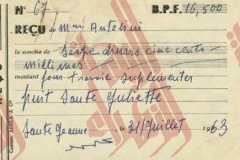 N° 67 B.P.F. 16,500
REÇU de Mr Antolini
la somme de Seize dinars cinq cents
millimes
montant pour travaux
puit Sante Juliette
Sante Jeanne, le 31/Juillet 1963